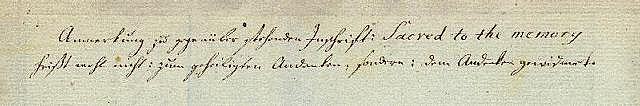 Anmerkung zu gegenüber stehenden Inschrift: Sacred to the memory
heißt wohl nicht: zum geheiligten Andenken, sondern: dem Andenken gewidmet.